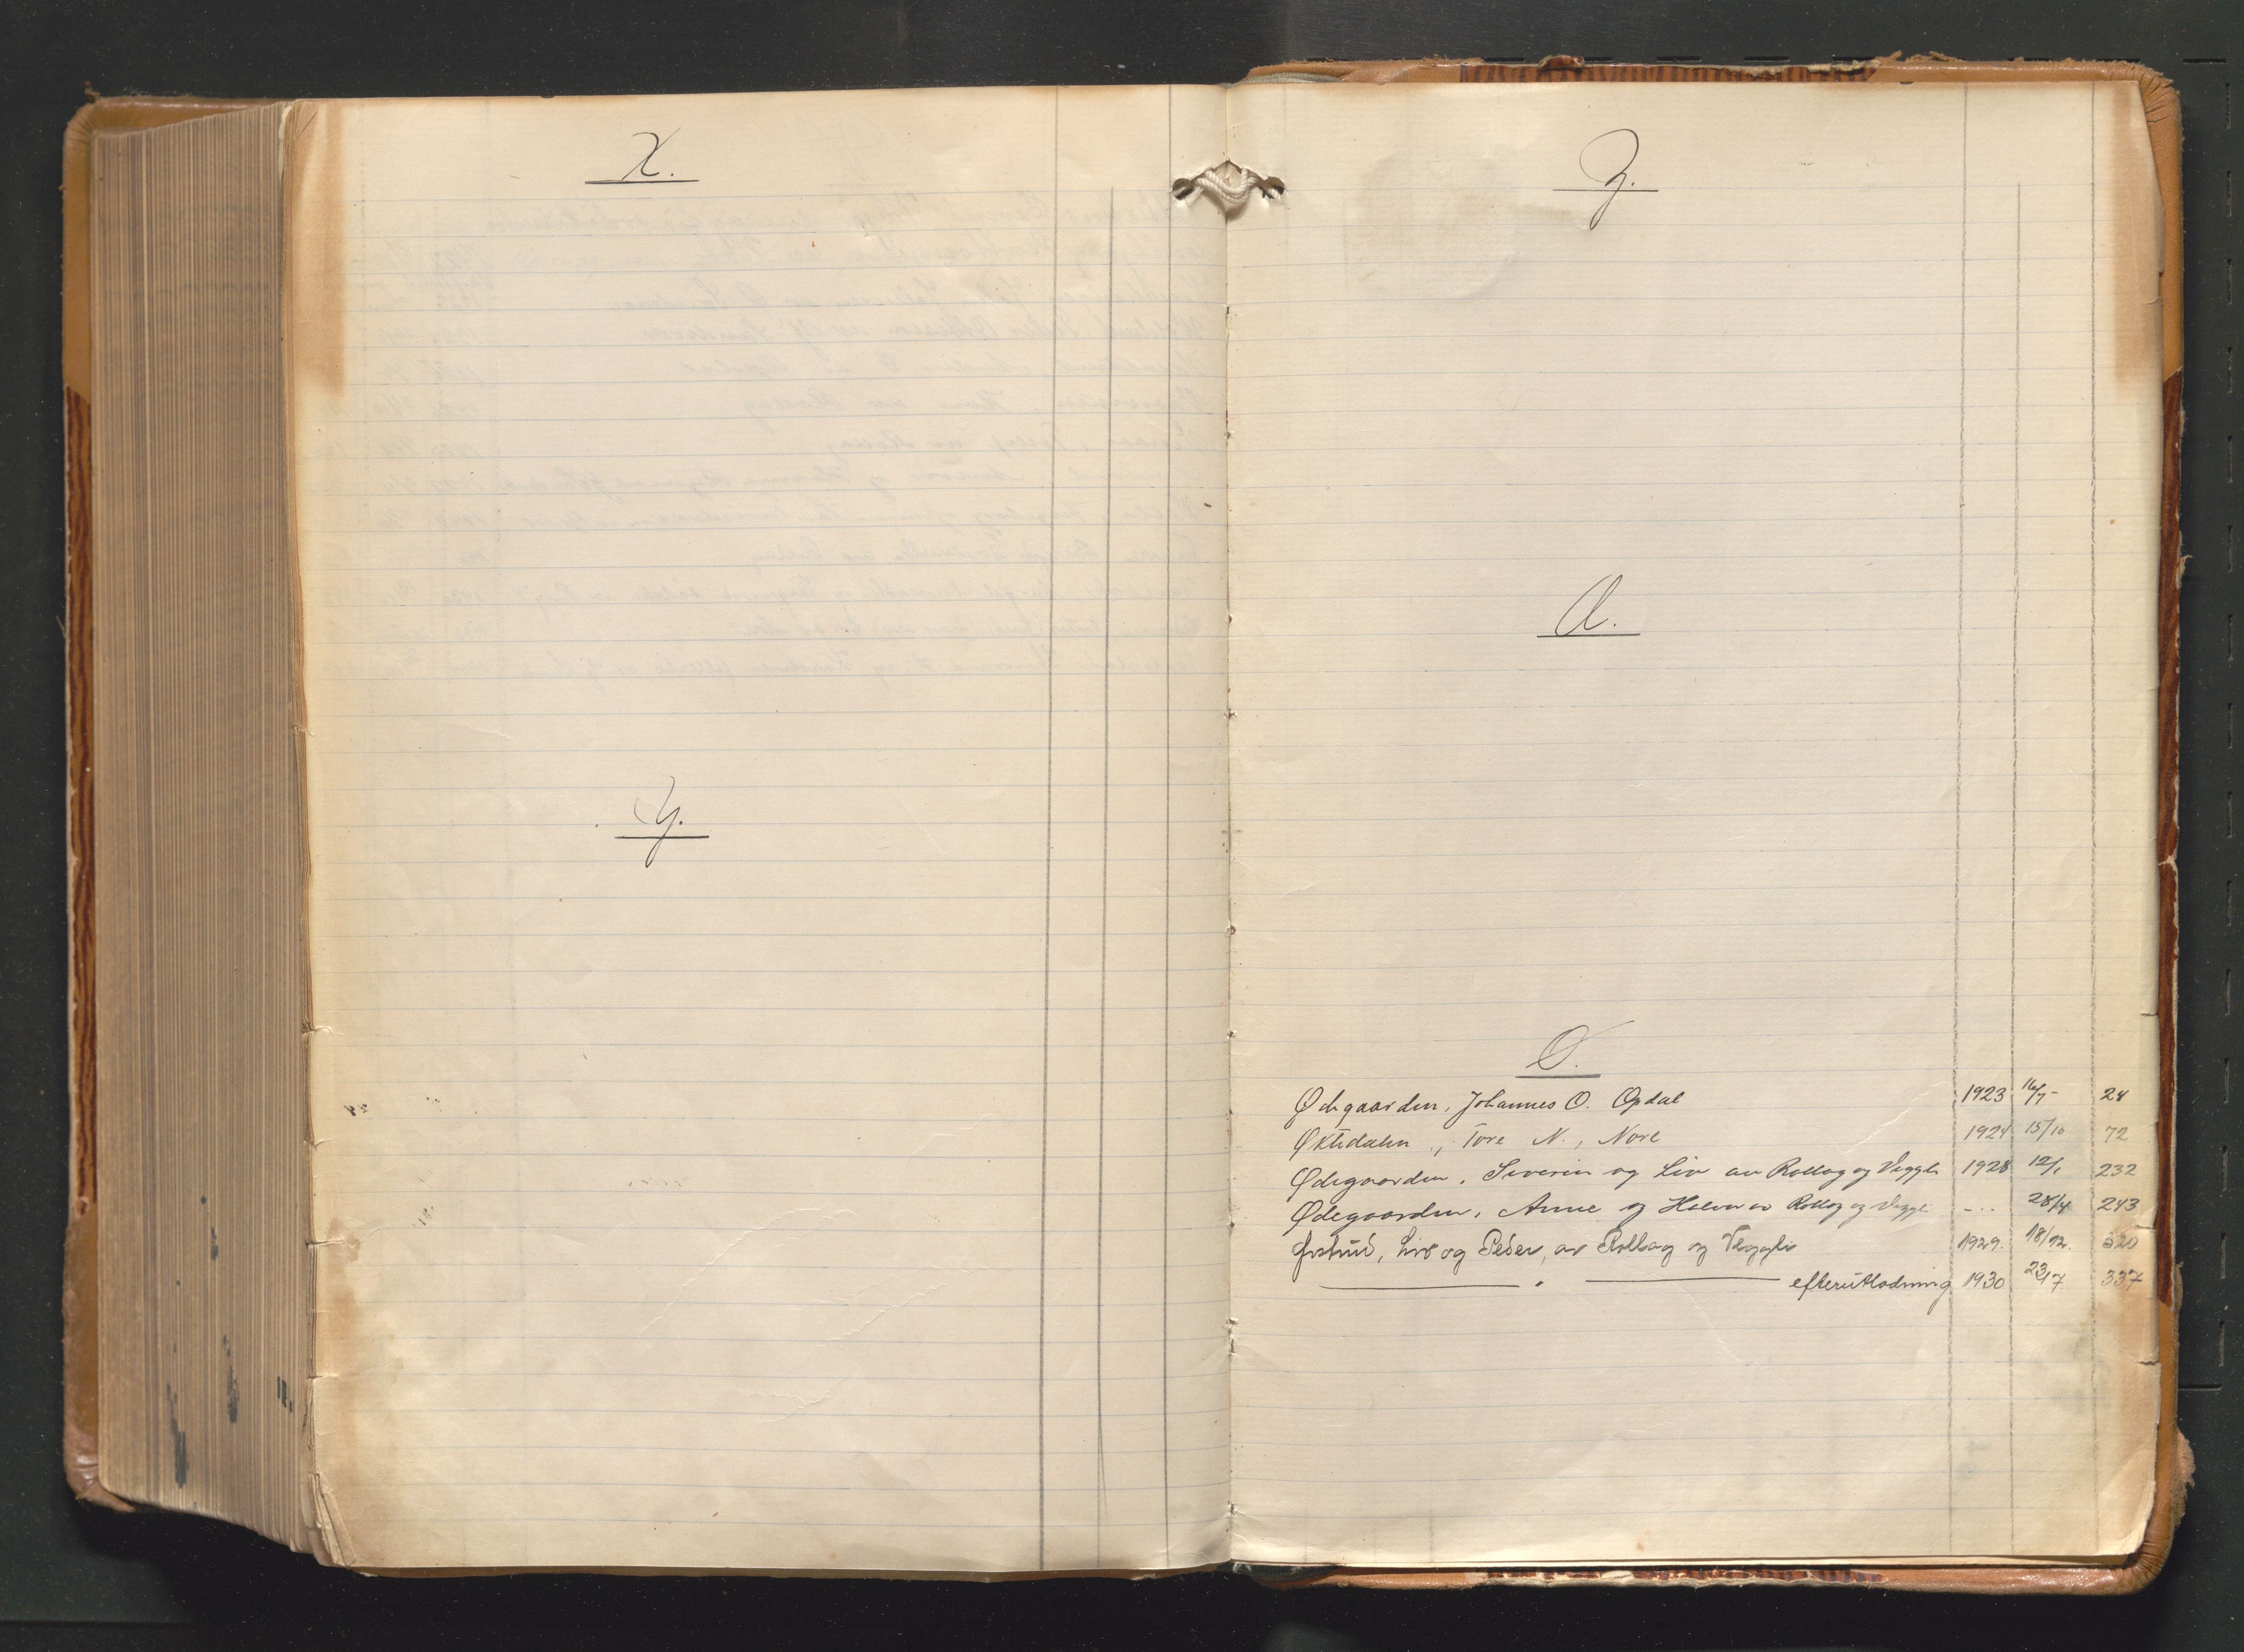 X.
Y.
Z.
Ø.
Ødegaarden, Johannes O. Opdal 1923 16/7 - 24
Øktedalen, Tore N., Nore 1924 15/10 72
Ødegaarden, Severin og Liv av Rollag og Veggli 1928 12/1 232
Ødegaarden, Anne og Halvor av Rollag og Veggli - .. 28/4 243
Ørstud, Liv og Peder, av Rollag og Veggli 1929. 18/12. 320
— " — efterutlodning 1930 23/7 337